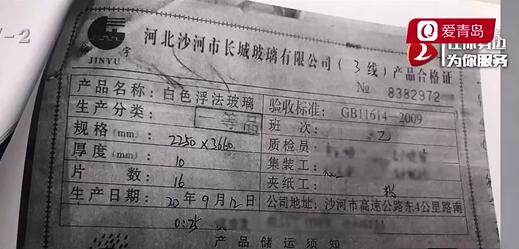 爱青岛
为你服务
JINYU
河北沙河市长城玻璃有限公司(3线)产品合格证
№ 8382972
产品名称:白色浮法玻璃 验收标准:GB11614-2009
生产分类: 一等品 班 次: 乙
规格(mm): 2250×3660 质检员:
厚度(mm): 10 集装工:
片 数: 16 夹纸工:
生产日期: 20年9月12日 公司地址:沙河市高速公路东4公里路南
产品储运须知